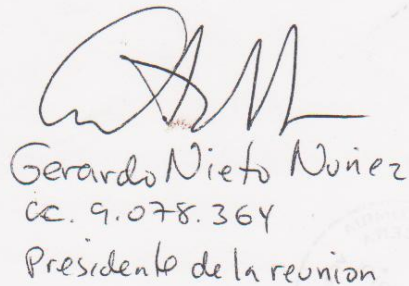 Gerardo Nieto Nuñez
cc. 9.078.364
Presidente de la reunion